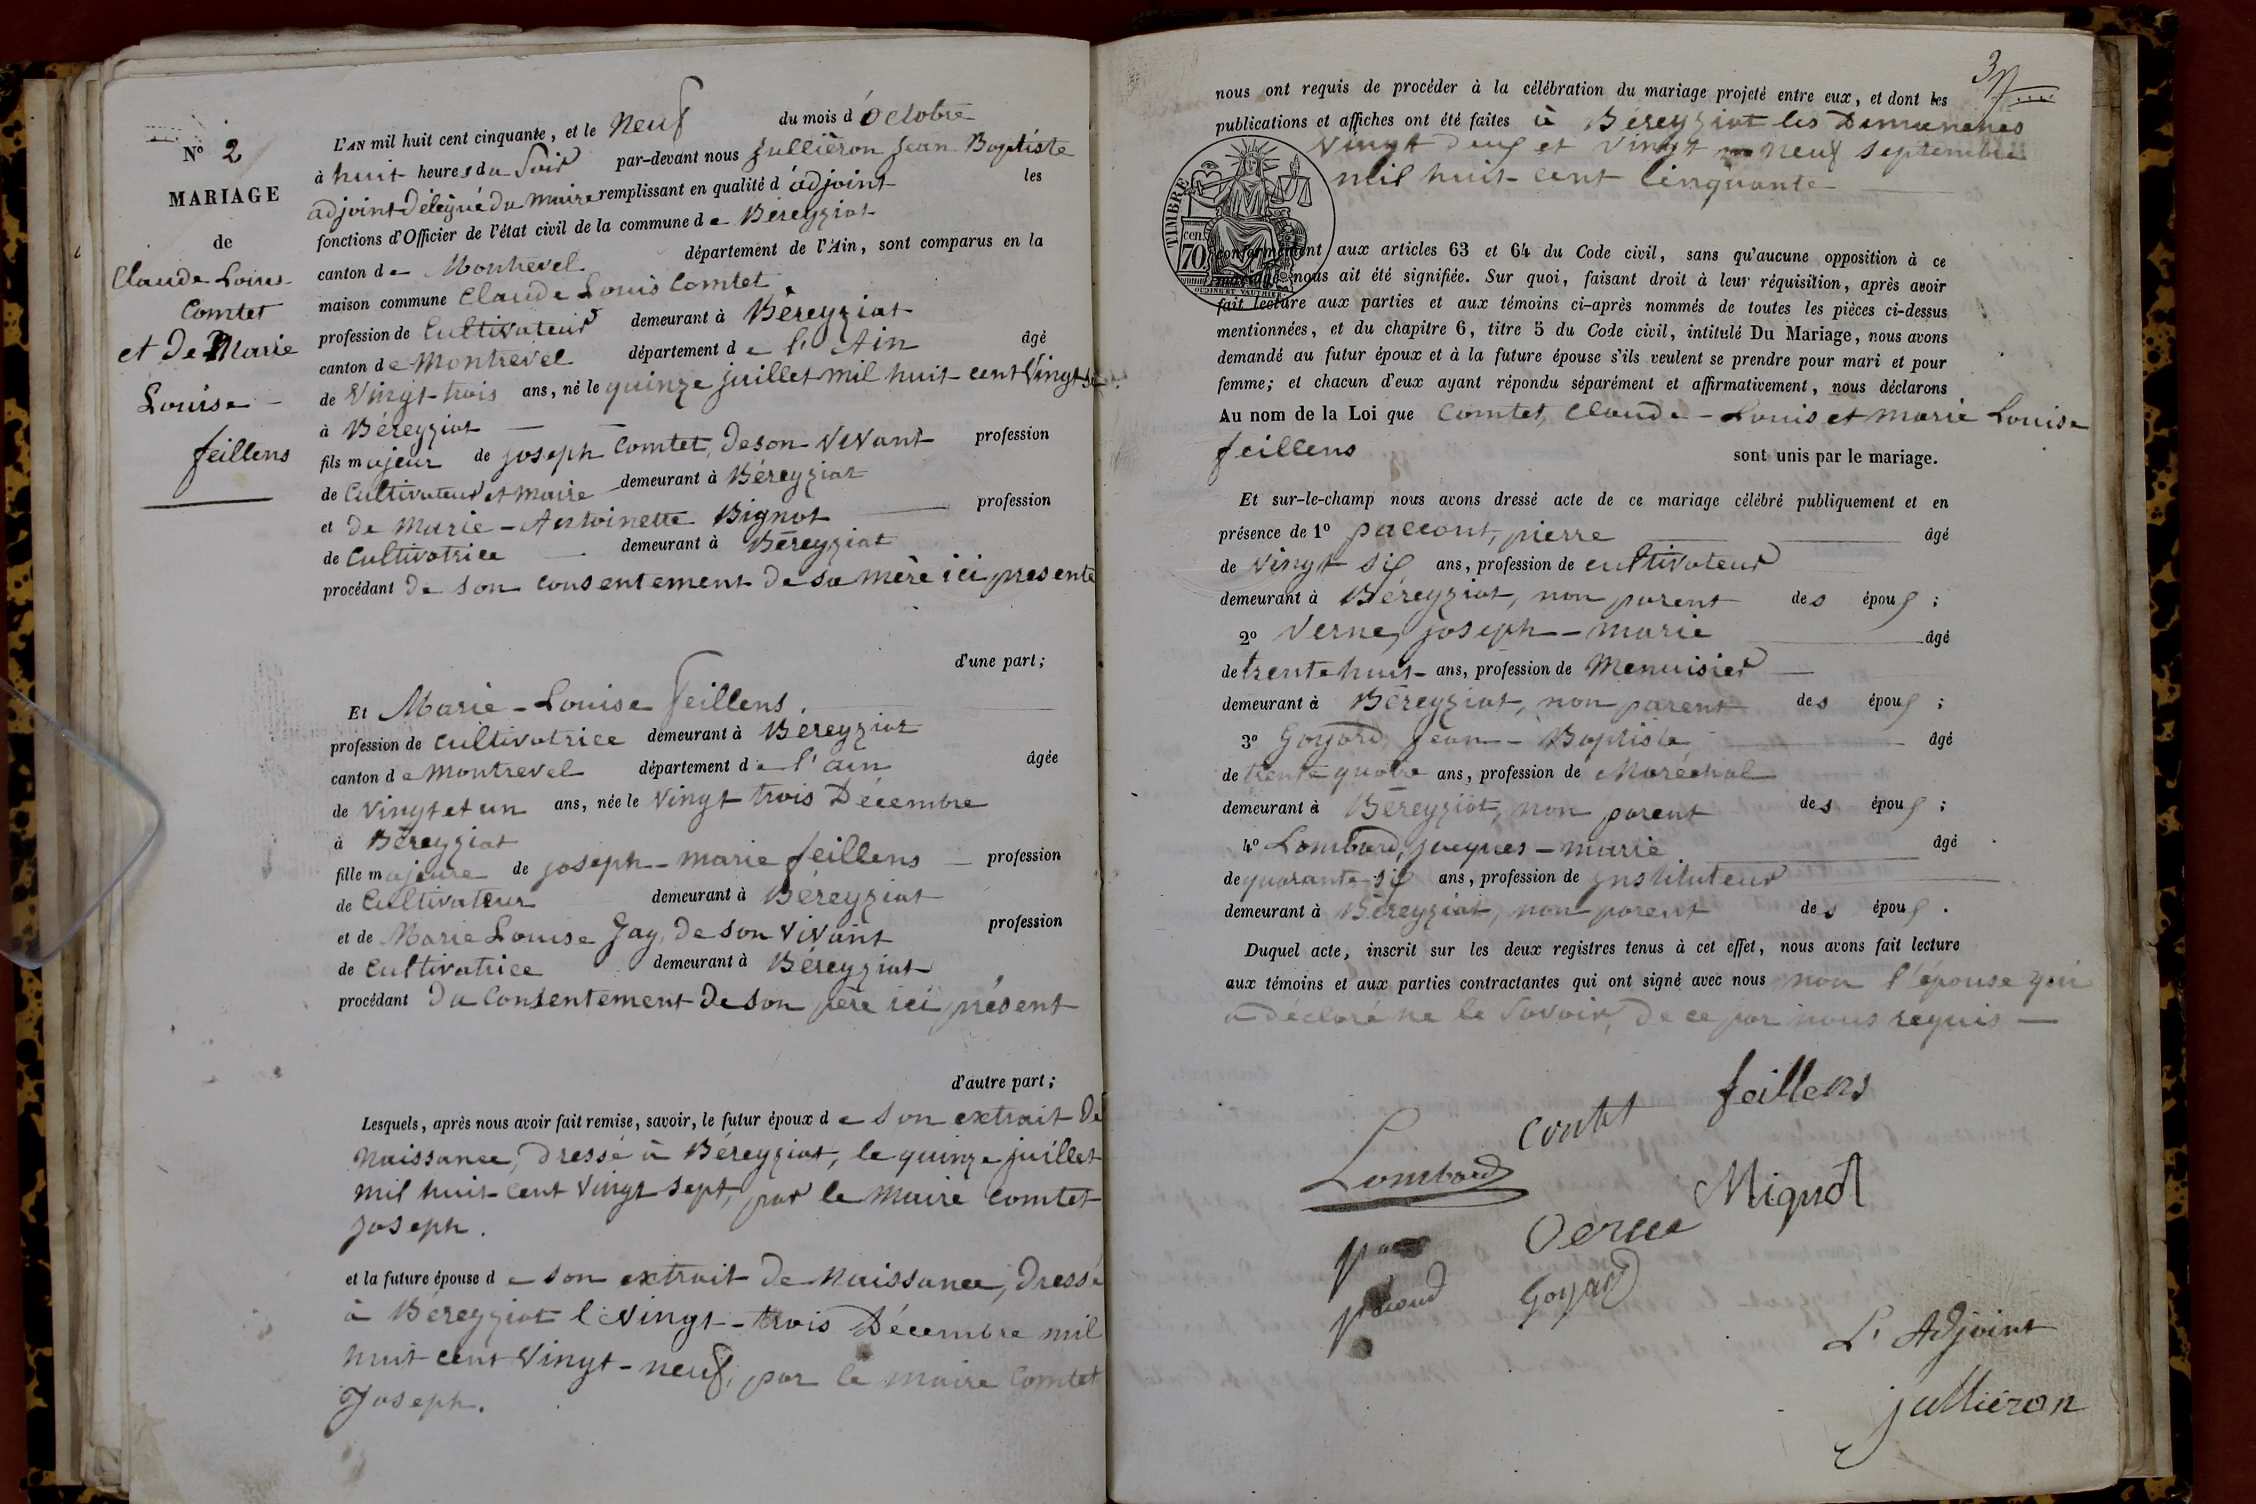 N° 2
MARIAGE
de
Claude Louis
Comtet
et de Marie
Louise
feillens
L'AN mil huit cent cinquante, et le Neuf du mois d'Octobre
à huit heures du Soir par-devant nous Jullièron Jean Baptiste
adjoint délégué du maire remplissant en qualité d'adjoint les
fonctions d'Officier de l'état civil de la commune de Béreyziat
canton de Montrevel département de l'Ain, sont comparus en la
maison commune Claude Louis Comtet
profession de Cultivateur demeurant à Béreyziat
canton de Montrevel département de l'Ain âgé
de Vingt-trois ans, né le quinze juillet mil huit cent Vingt
à Béreyziat
fils majeur de joseph Comtet, de son vivant profession
de Cultivateur et maire demeurant à Béreyziat
et de Marie-Antoinette Mignot profession
de Cultivatrice demeurant à Béreyziat
procédant de son consentement de sa mère ici présente
d'une part;
Et Marie-Louise feillens
profession de cultivatrice demeurant à Béreyziat
canton de Montrevel département de l'ain âgée
de vingt et un ans, née le vingt trois Décembre
à Béreyziat
fille majeure de joseph-marie feillens profession
de Cultivateur demeurant à Béreyziat
et de Marie Louise Gay, de son vivant profession
de Cultivatrice demeurant à Béreyziat
procédant du Consentement de son père ici présent
d'autre part;
Lesquels, après nous avoir fait remise, savoir, le futur époux de son extrait de
Naissance, dressé à Béreyziat, le quinze juillet
mil huit cent vingt sept, par le maire Comtet
joseph.
et la future épouse de son extrait de Naissance, dressé
à Béreyziat le vingt-trois Décembre mil
huit cent vingt-neuf, par le maire Comtet
Joseph.
nous ont requis de procéder à la célébration du mariage projeté entre eux, et dont les
publications et affiches ont été faites à Béreyziat les Dimanches
Vingt deux et Vingt neuf septembre
mil huit cent cinquante
TIMBRE
cen.
70
conformément aux articles 63 et 64 du Code civil, sans qu'aucune opposition à ce
mariage nous ait été signifiée. Sur quoi, faisant droit à leur réquisition, après avoir
fait lecture aux parties et aux témoins ci-après nommés de toutes les pièces ci-dessus
mentionnées, et du chapitre 6, titre 5 du Code civil, intitulé Du Mariage, nous avons
demandé au futur époux et à la future épouse s'ils veulent se prendre pour mari et pour
femme; et chacun d'eux ayant répondu séparément et affirmativement, nous déclarons
Au nom de la Loi que Comtet, Claude-Louis et marie Louise
feillens sont unis par le mariage.
Et sur-le-champ nous avons dressé acte de ce mariage célébré publiquement et en
présence de 1° paccout, pierre âgé
de vingt six ans, profession de cultivateur
demeurant à Béreyziat, non parent des époux;
2° Verne, joseph-marie âgé
de trente huit ans, profession de Menuisier
demeurant à Béreyziat, non parent des époux;
3° Goyard, Jean-Baptiste âgé
de trente quatre ans, profession de Maréchal
demeurant à Béreyziat, non parent des époux;
4° Lombard, jacques-marie âgé
de quarante six ans, profession de Instituteur
demeurant à Béreyziat, non parent des époux.
Duquel acte, inscrit sur les deux registres tenus à cet effet, nous avons fait lecture
aux témoins et aux parties contractantes qui ont signé avec nous non l'épouse qui
a déclaré ne le savoir, de ce par nous requis
feillens
contet
Lombard
Mignot
Verne
Goyard
L'Adjoint
julliéron